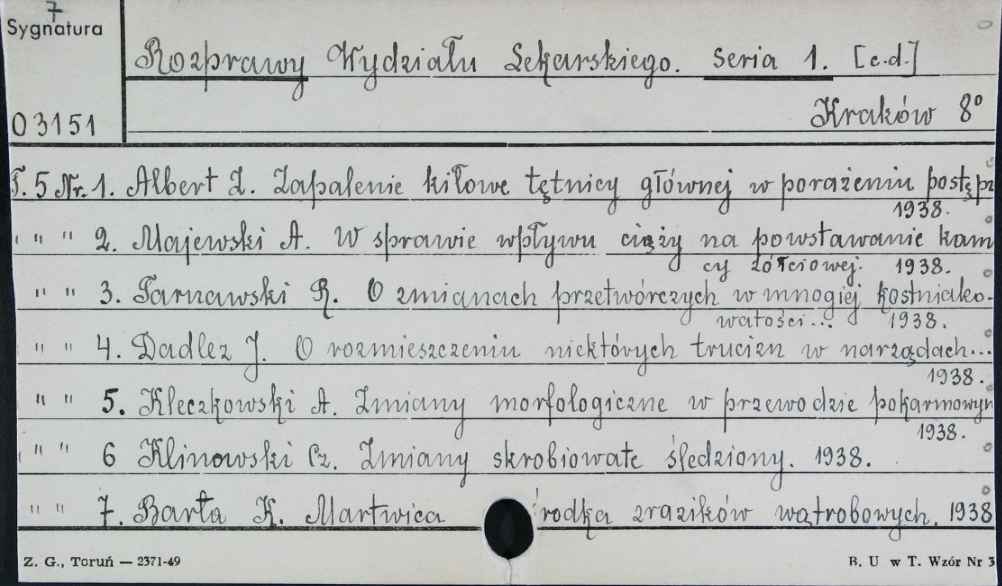 7
Sygnatura
Rozprawy Wydziału Lekarskiego. seria 1. [c.d.]
03151
Kraków 8°
T. 5 Nr. 1. Albert Z. Zapalenie kiłowe tętnicy głównej w porażeniu postęp
1938.
" " 2. Majewski A. W sprawie wpływu ciąży na powstawanie kam
cy żółciowej. 1938.
" " 3. Tarnawski R. O zmianach przetwórczych w mnogiej kostniako-
watości... 1938.
" " 4. Dadlez J. O rozmieszczeniu niektórych trucizn w narządach...
1938.
" " 5. Kleczkowski A. Zmiany morfologiczne w przewodzie pokarmowym
1938.
" " 6 Klinowski Cz. Zmiany skrobiowate śledziony. 1938.
" " 7. Barta K. Martwica środka zrazików wątrobowych. 1938
Z. G., Toruń — 2371-49
B. U w T. Wzór Nr 3